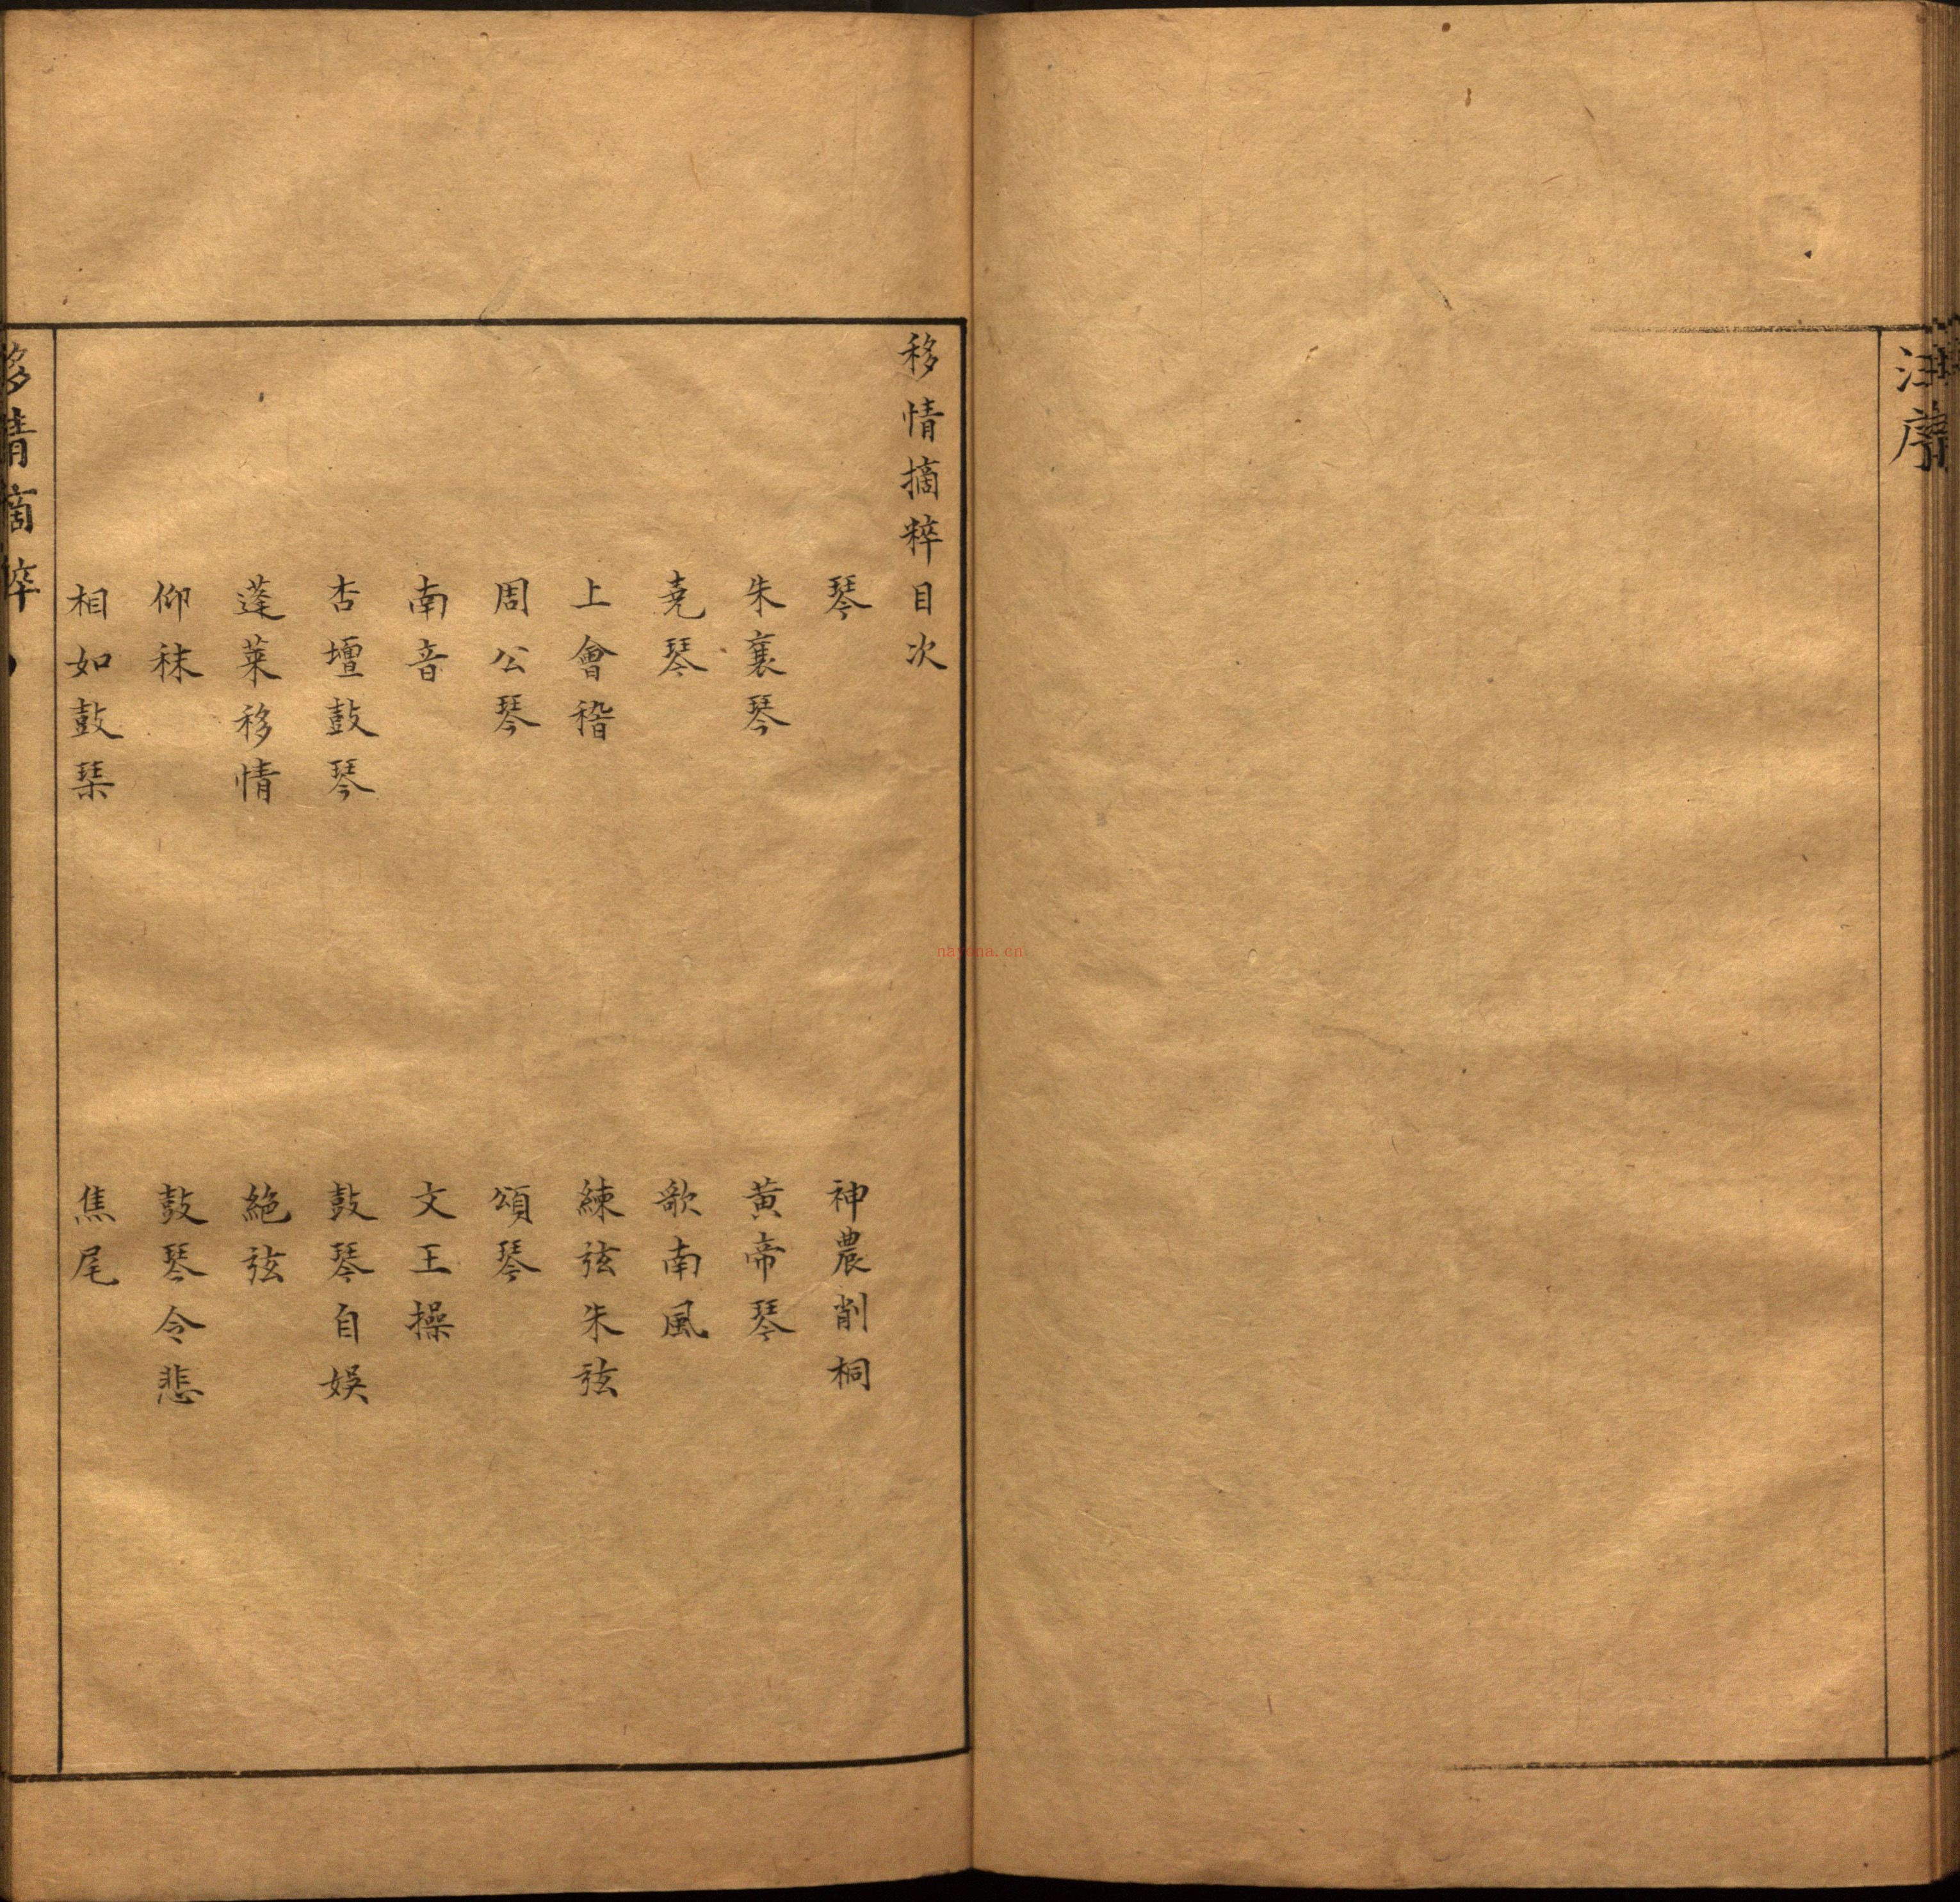 序
移情摘粹目次
琴
神農削桐
朱襄琴
黃帝琴
堯琴
歌南風
上會稽
練弦朱弦
周公琴
頌琴
南音
文王操
杏壇鼓琴
鼓琴自娛
蓬萊移情
絕弦
仰秣
鼓琴令悲
相如鼓琹
焦尾
移情摘粹
nayona.cn